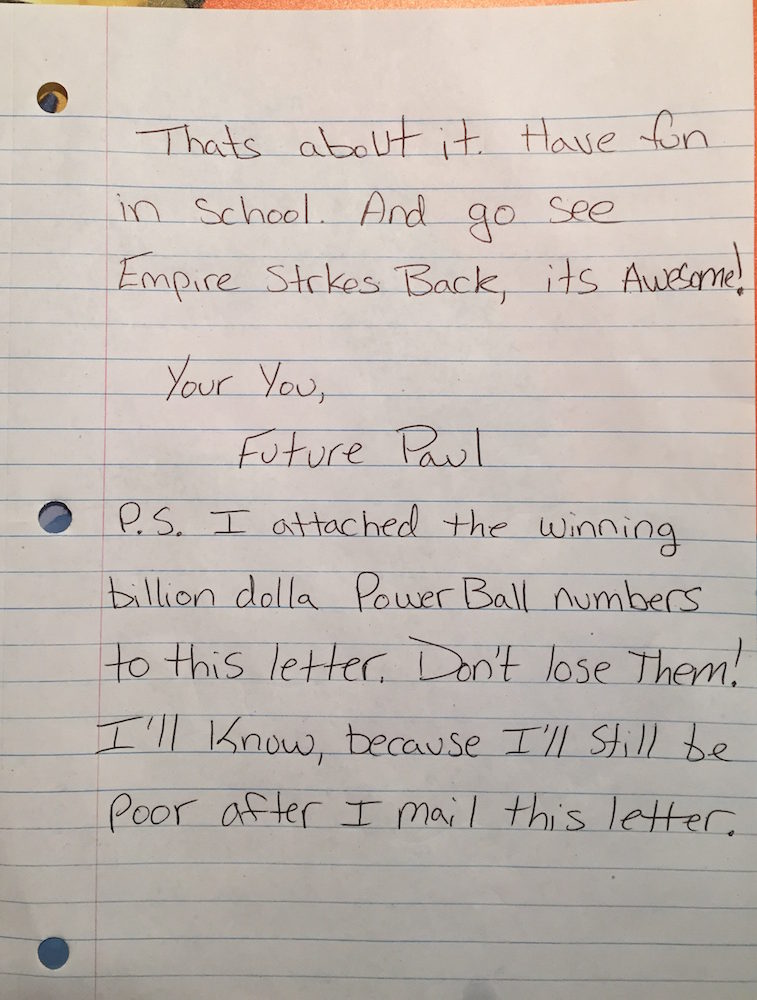 Thats about it. Have fun
in School. And go see
Empire Strkes Back, its Awesome!
Your You,
Future Paul
P.S. I attached the winning
billion dolla PowerBall numbers
to this letter. Don't lose Them!
I'll Know, because I'll Still be
Poor after I mail this letter.